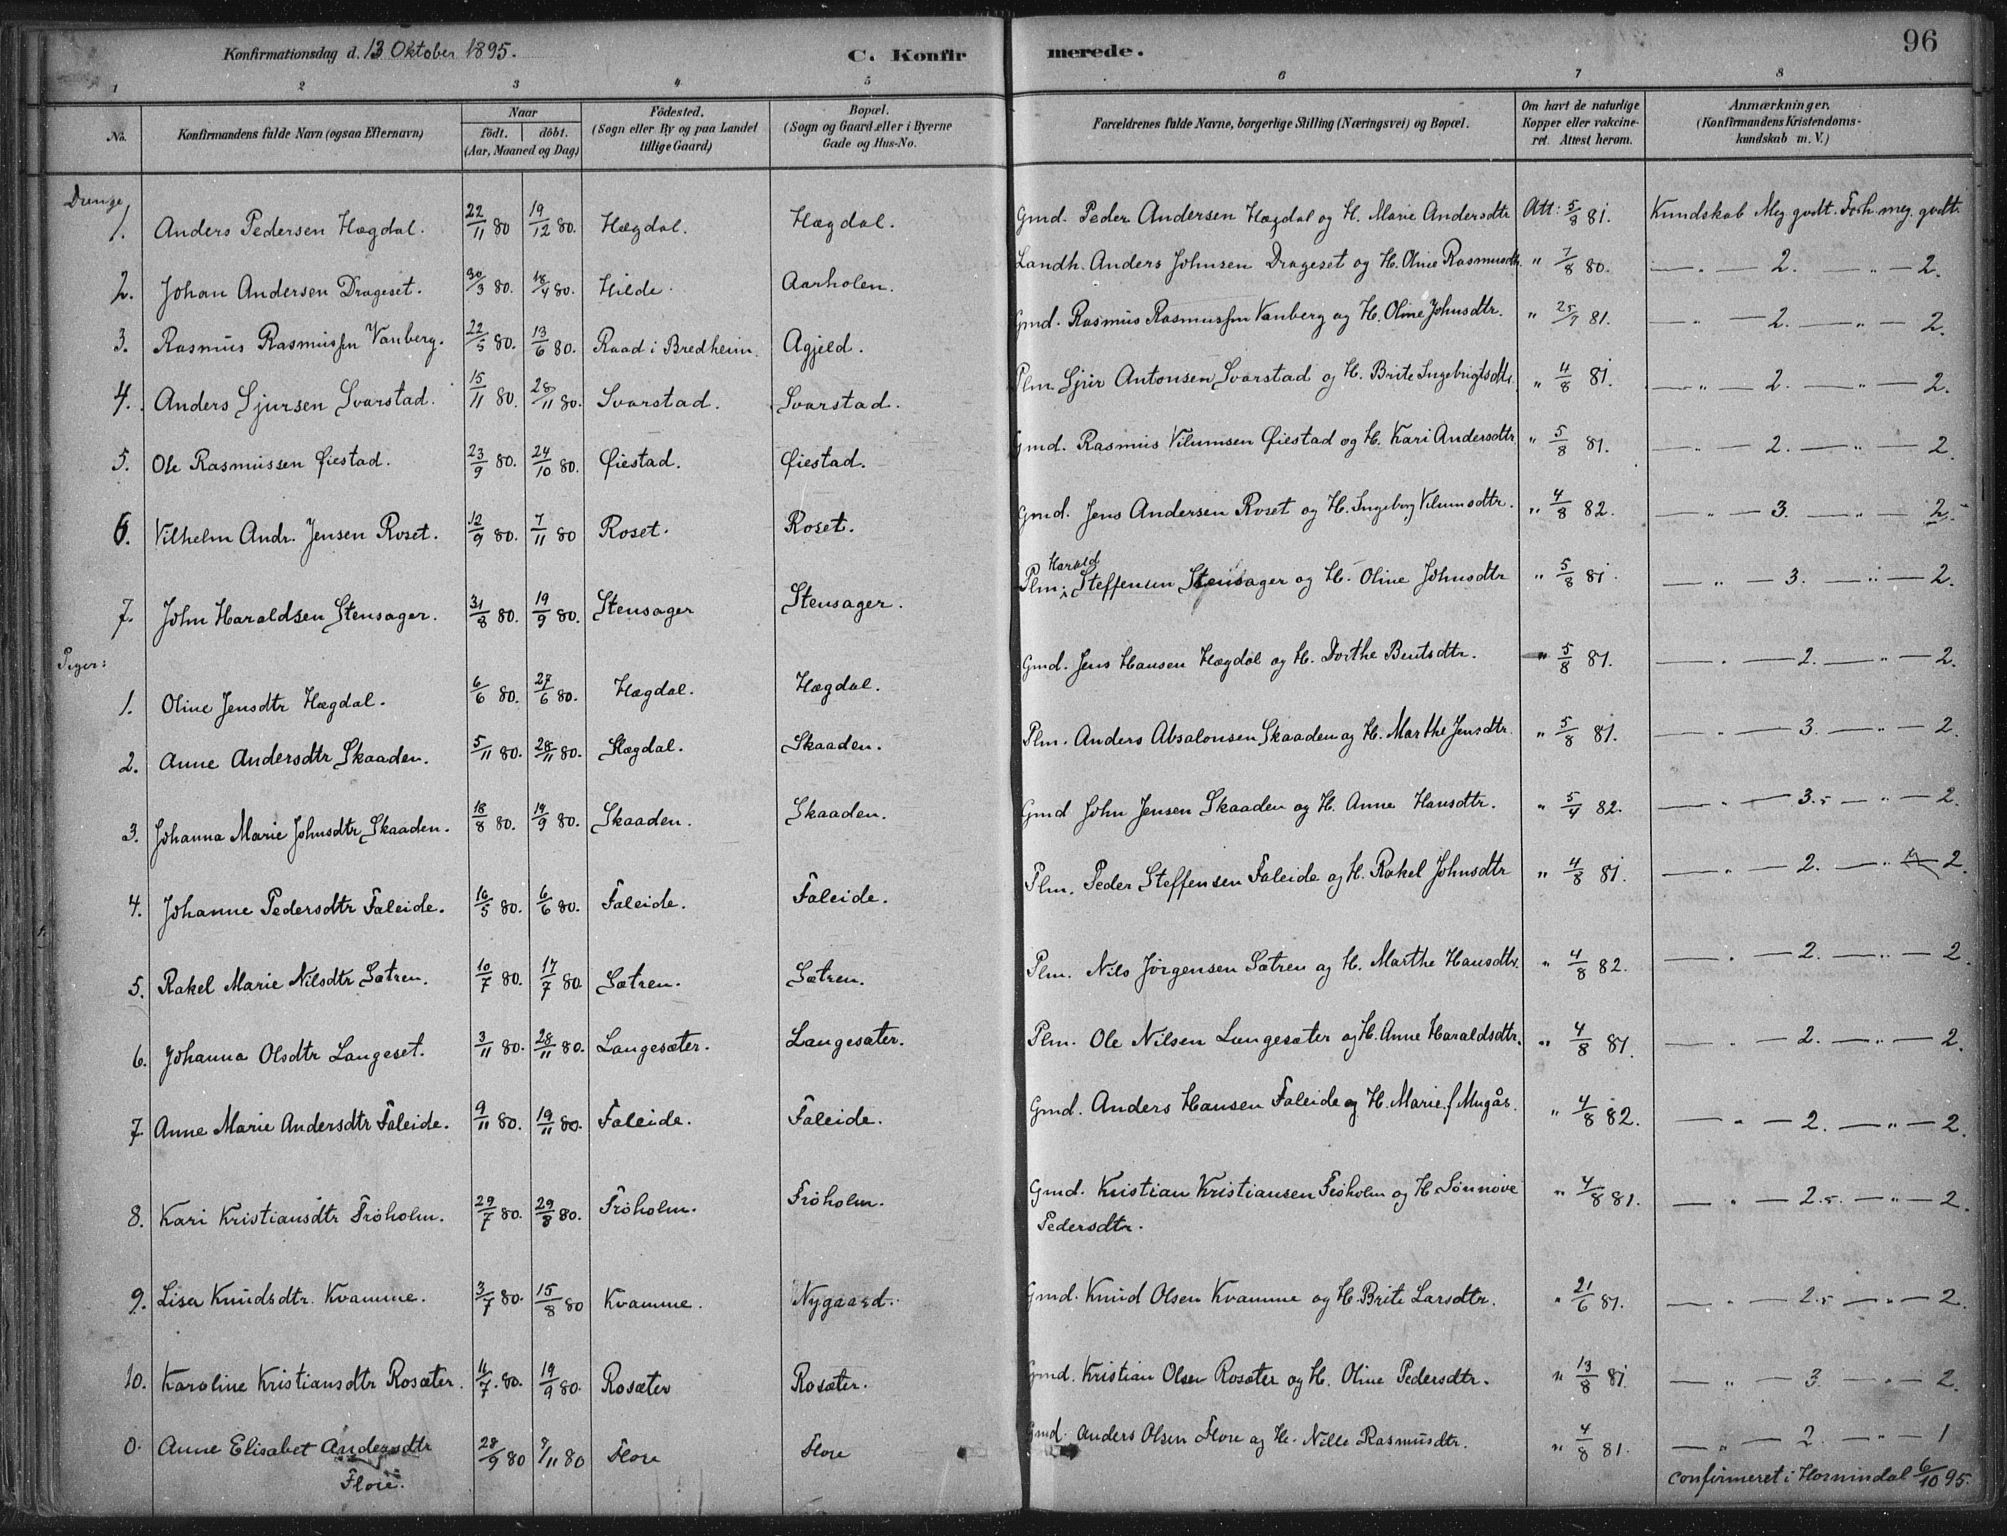 Konfirmationsdag d. 13 Oktober 1895.
C. Konfirmerede.
96
1 2 3 4 5 6 7 8
No.
Konfirmandens fulde Navn (ogsaa Efternavn)
Naar
födt. döbt.
(Aar, Maaned og Dag)
Födested.
(Sogn eller By og paa Landet
tillige Gaard)
Bopæl.
(Sogn og Gaard eller i Byerne
Gade og Hus-No.
Forældrenes fulde Navne, borgerlige Stilling (Næringsvei) og Bopæl.
Om havt de naturlige
Kopper eller vakcine-
ret. Attest herom.
Anmærkninger.
(Konfirmandens Kristendoms-
kundskab m. V.)
Drenge
1. Anders Pedersen Hægdal. 22/11 80 19/12 80. Hægdal. Hægdal. Gmd. Peder Andersen Hægdal og H. Marie Andersdtr Att: 5/8 81. Kundskab Meg. godt. Forh. meg. godt.
2. Johan Andersen Drageset. 30/3 80. 18/4 80. Hilde. Aarholen. Landh. Anders Johnsen Drageset og H. Oline Rasmusdtr. " 7/8 80. — " — 2. — " — 2.
3. Rasmus Rasmussen Vanberg. 22/5 80. 13/6 80. Raad i Bredheim. Agjeld. Gmd. Rasmus Rasmussen Vanberg og H. Oline Johnsdtr. " 25/7 81. — " — 2. — " — 2.
4. Anders Sjursen Svarstad. 15/11 80. 28/11 80. Svarstad. Svarstad. Plm. Sjur Antonsen Svarstad og H. Brite Ingebrigtsdtr. " 4/8 81. — " — 2. — " — 2.
5. Ole Rasmussen Øiestad. 23/9 80. 24/10 80. Øiestad. Øiestad. Gmd. Rasmus Vilumsen Øiestad og H. Kari Andersdtr. " 5/8 81. — " — 2. — " — 2.
6. Vilhelm Andr. Jensen Roset. 12/9 80. 7/11 80 Roset. Roset. Gmd. Jens Andersen Roset og H. Ingeborg Vilumsdtr. " 4/8 82. — " — 3. — " — 2.
7. John Haraldsen Stensager. 31/8 80. 19/9 80. Stensager Stensager. Plm. Harald Steffensen Stensager og H. Oline Johnsdtr " 5/8 81. — " — 3. — " — 2.
Piger:
1. Oline Jensdtr Hægdal. 6/6 80. 27/6 80. Hægdal. Hægdal. Gmd. Jens Hansen Hægdal og H. Dorthe Bentsdtr. " 5/8 81. — " — 2. — " — 2.
2. Anne Andersdtr Skaaden. 5/11 80. 28/11 80. Hægdal. Skaaden. Plm. Anders Absalonsen Skaaden og H. Marthe Jensdtr. " 5/8 81. — " — 3. — " — 2.
3. Johanna Marie Johnsdtr Skaaden. 18/8 80. 19/9 80. Skaaden. Skaaden. Gmd John Jensen Skaaden og H. Anne Hansdtr. " 5/4 82. — " — 3.5 — " — 2.
4. Johanne Pedersdtr Faleide. 16/5 80. 6/6 80. Faleide. Faleide. Plm. Peder Steffensen Faleide og H. Rakel Johnsdtr " 4/8 81. — " — 2. — " — 2.
5. Rakel Marie Nilsdtr Sætren. 10/7 80. 17/7 80 Sætren. Sætren. Plm. Nils Jørgensen Sætren og H. Marthe Hansdtr. " 4/8 82. — " — 2. — " — 2.
6. Johanna Olsdtr Langeset. 3/11 80. 28/11 80. Langesæter. Langesæter. Plm. Ole Nilsen Langesæter og H. Anne Haraldsdtr. " 4/8 81. — " — 2. — " — 2.
7. Anne Marie Andersdtr Faleide. 9/11 80. 19/11 80. Faleide. Faleide. Gmd. Anders Hansen Faleide og H. Marie f. Mugås. " 4/8 82. — " — 2. — " — 2.
8. Kari Kristiansdtr Frøholm. 29/7 80. 29/8 80. Frøholm. Frøholm. Gmd. Kristian Kristiansen Frøholm og H. Sønnøve " 4/8 81. — " — 2.5 — " — 2.
Pedersdtr.
9. Lisa Knudsdtr. Kvamme. 3/7 80. 15/8 80 Kvamme. Nygaard. Gmd. Knud Olsen Kvamme og H. Brite Larsdtr. " 21/6 81. — " — 2.5 — " — 2.
10. Karoline Kristiansdtr Rosæter. 11/7 80. 19/9 80. Rosæter Rosæter. Gmd. Kristian Olsen Rosæter og H. Oline Pedersdtr. " 13/8 81. — " — 3 — " — 2.
0. Anne Elisabet Andersdtr 28/9 80 7/11 80 Flore Flore Gmd. Anders Olsen Flore og H. Nille Rasmusdtr. " 4/8 81. — " — 2. — " — 1
Flore. confirmeret i Hornindal 6/10 95.